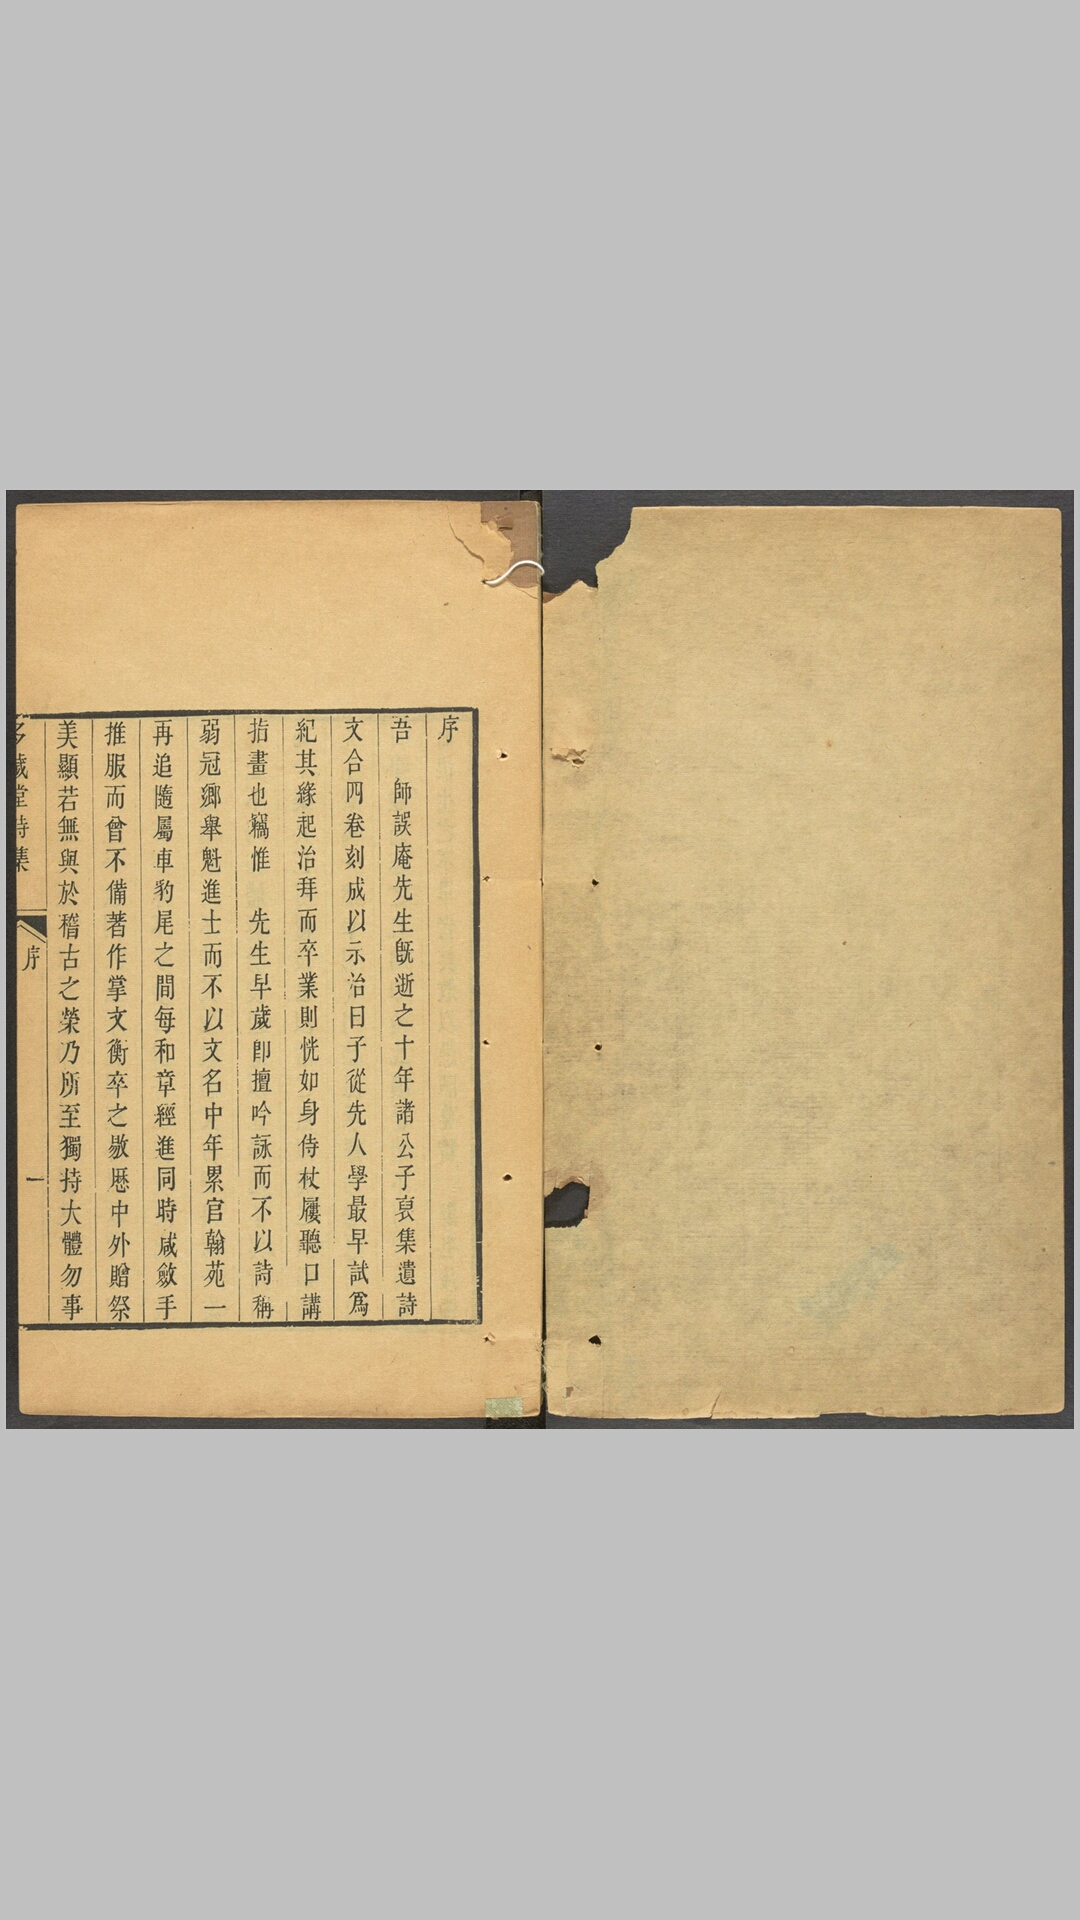 序
吾　師誤庵先生旣逝之十年諸公子裒集遺詩
文合四卷刻成以示治曰子從先人學最早試爲
紀其緣起治拜而卒業則恍如身侍杖屨聽口講
指畫也竊惟　先生早歲卽擅吟詠而不以詩稱
弱冠鄉舉魁進士而不以文名中年累官翰苑一
再追隨屬車豹尾之間每和章經進同時咸斂手
推服而曾不備著作掌文衡卒之敭歷中外贈祭
美顯若無與於稽古之榮乃所至獨持大體勿事
歲堂詩集
序
一